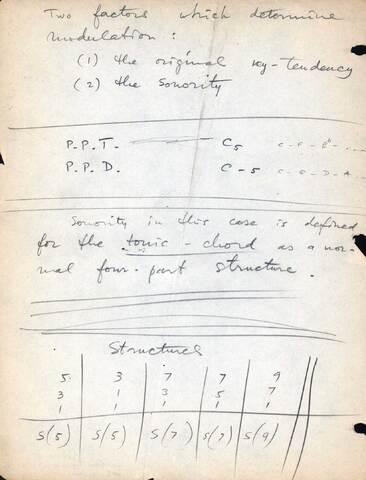 Two factors which determine
modulation:
(1) the original key-tendency
(2) the sonority
P.P.T. C5
P.P.D. C-5
Sonority in this case is defined
for the tonic-chord as a nor-
mal four-part structure.
Structures
5 3 7 7 9
3 1 3 5 7
1 1 1 1
S(5) S(5) S(7) S(7) S(9)